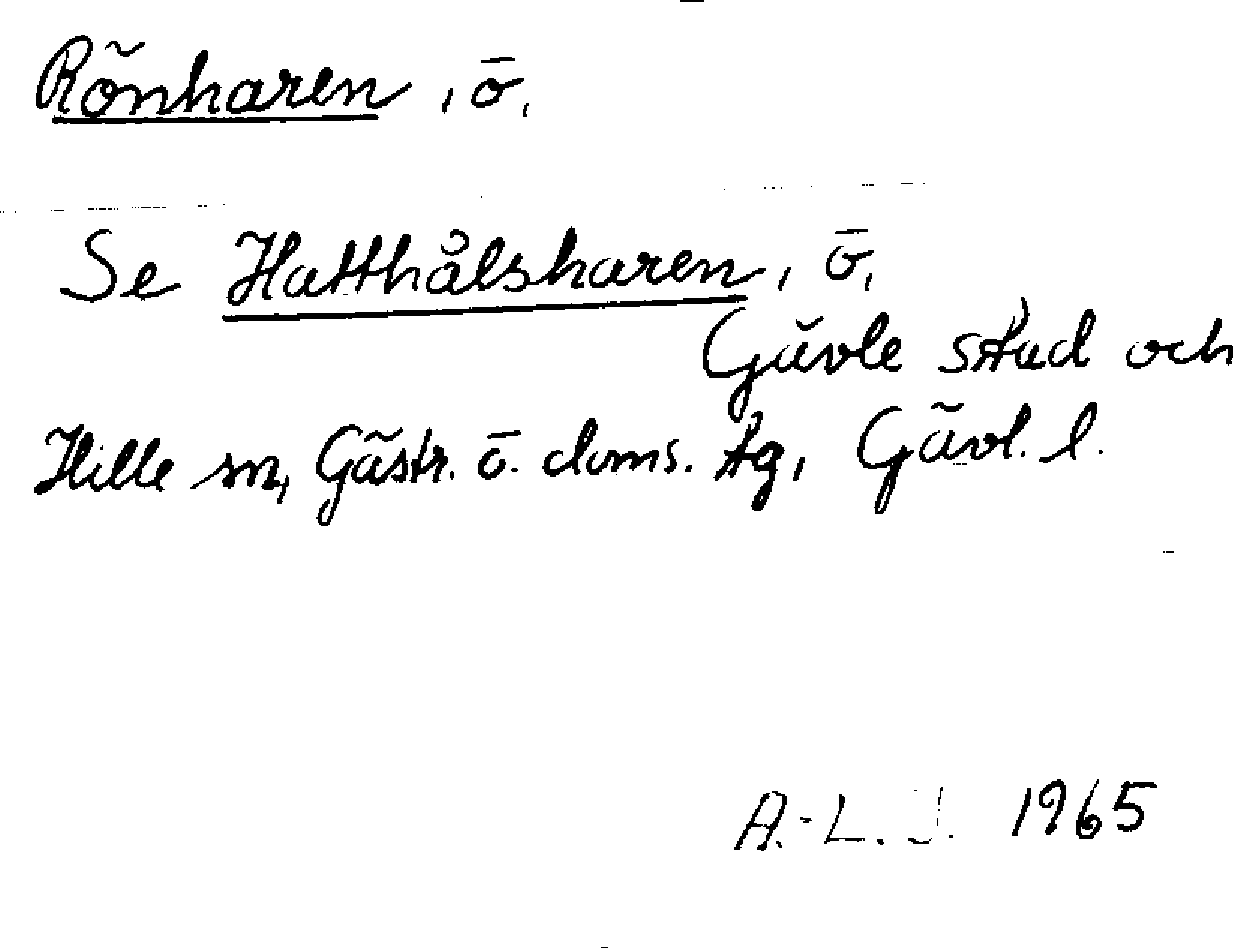 Rönharen, ö,
Se Hatthålsharen, ö,
Gävle stad och
Hille sn, Gästr. ö. doms. tg, Gävl. l.
A.-L. J. 1965